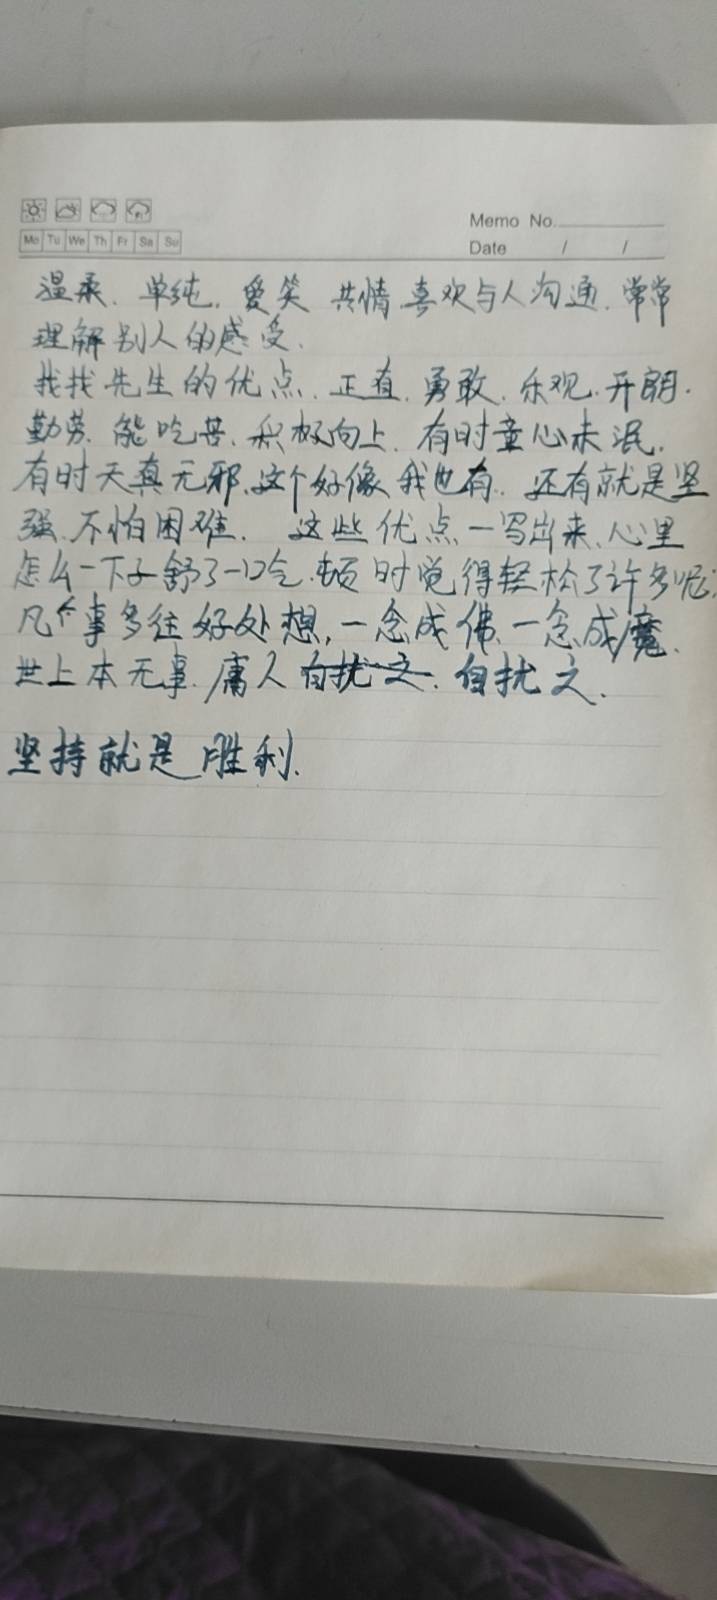 Memo No.
Mo Tu We Th Fr Sa Su
Date / /
温柔、单纯、爱笑 共情 喜欢与人沟通、常常
理解别人的感受、
找找先生的优点、正直、勇敢、乐观、开朗、
勤劳、能吃苦、积极向上、有时童心未泯、
有时天真无邪、这个好像我也有、还有就是坚
强、不怕困难、这些优点一写出来、心里
怎么一下子舒了一口气、顿时觉得轻松了许多呢、
凡个事多往好处想，一念成佛、一念成魔、
世上本无事、庸人自扰之、自扰之、
坚持就是胜利、